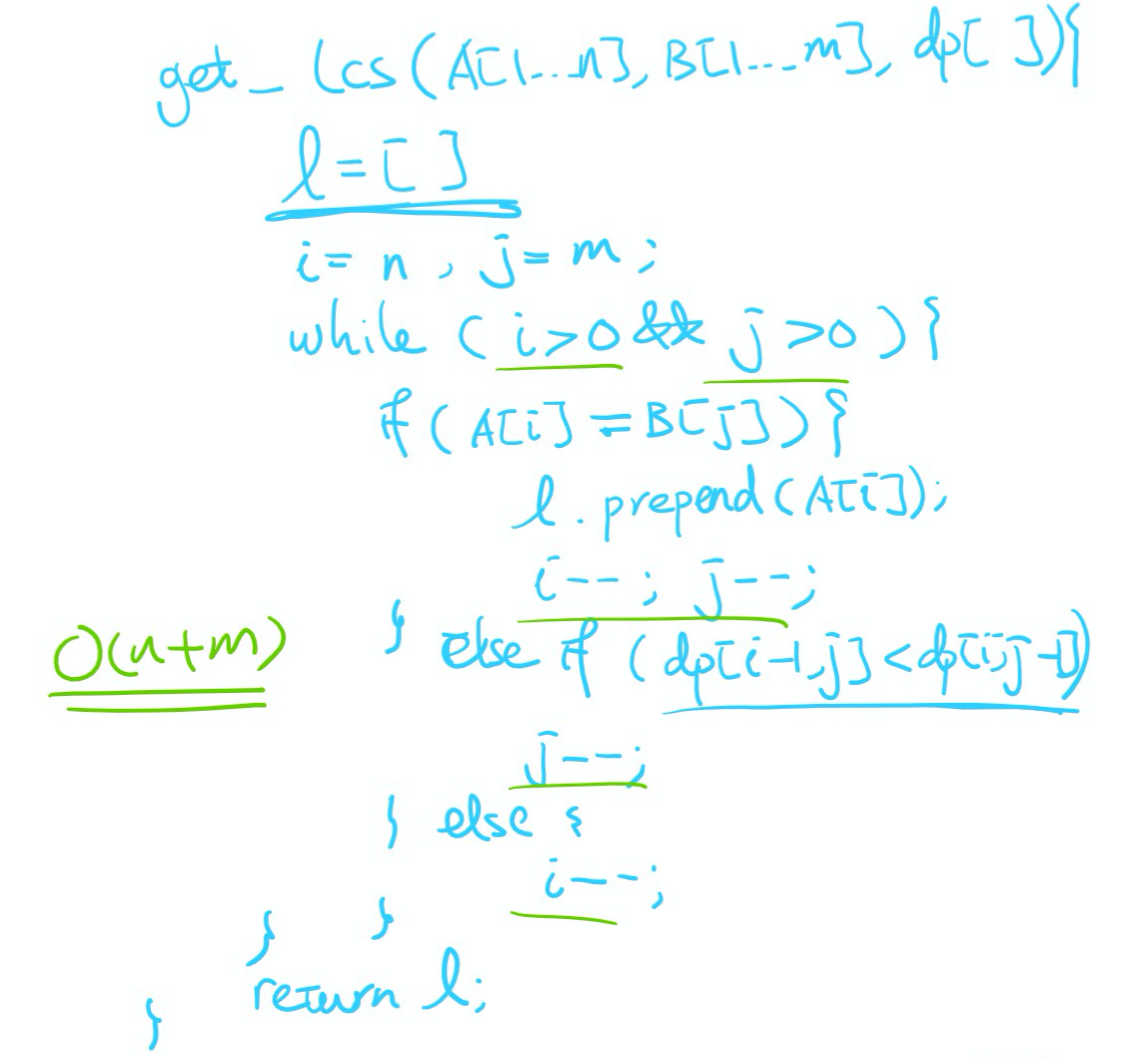 get_lcs(A[1...n], B[1...m], dp[ ]){
l=[ ]
i= n , j= m ;
while ( i>0 && j>0 ) {
if ( A[i] = B[j] ) {
l . prepend(A[i]);
i--; j--;
O(n+m)
} else if ( dp[i-1,j] < dp[i,j-1])
j--;
} else {
i--;
} }
return l;
}